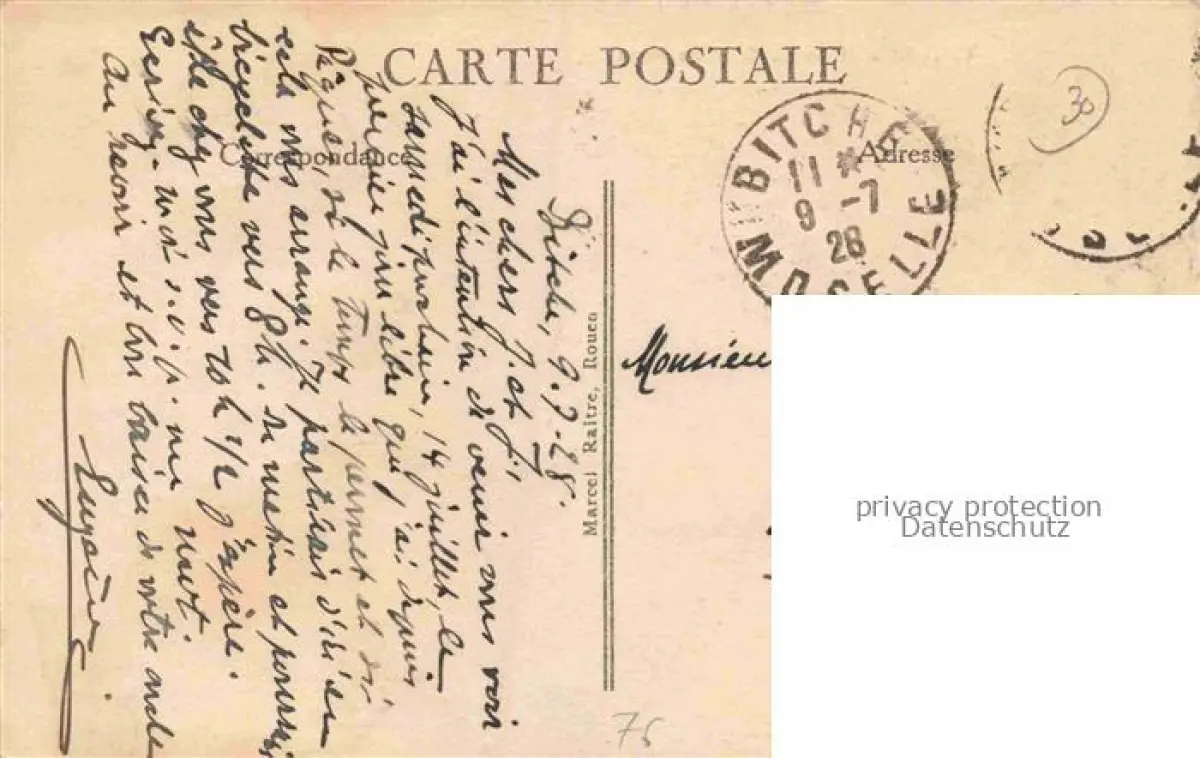 CARTE POSTALE
Correspondance
Adresse
BITCHE
11 * 
9 -7
28
MOSELLE
30
Bitche, 9.7.28.
Mes chers J. et J.
J'ai l'intention de venir vous voir
samedi prochain, 14 juillet, le
premier jour libre que j'ai depuis
Pâques, si le temps le permet et si
cela vous arrange. Je partirais d'ici en
bicyclette vers 8 h. du matin et pourrais
être chez vous vers 10 h 1/2 j'espère.
Écrivez-moi s.v.p. un mot.
Au revoir et bons baisers de votre
Eugène
Marcel Raitre, Rouen
Monsieu
76
privacy protection
Datenschutz